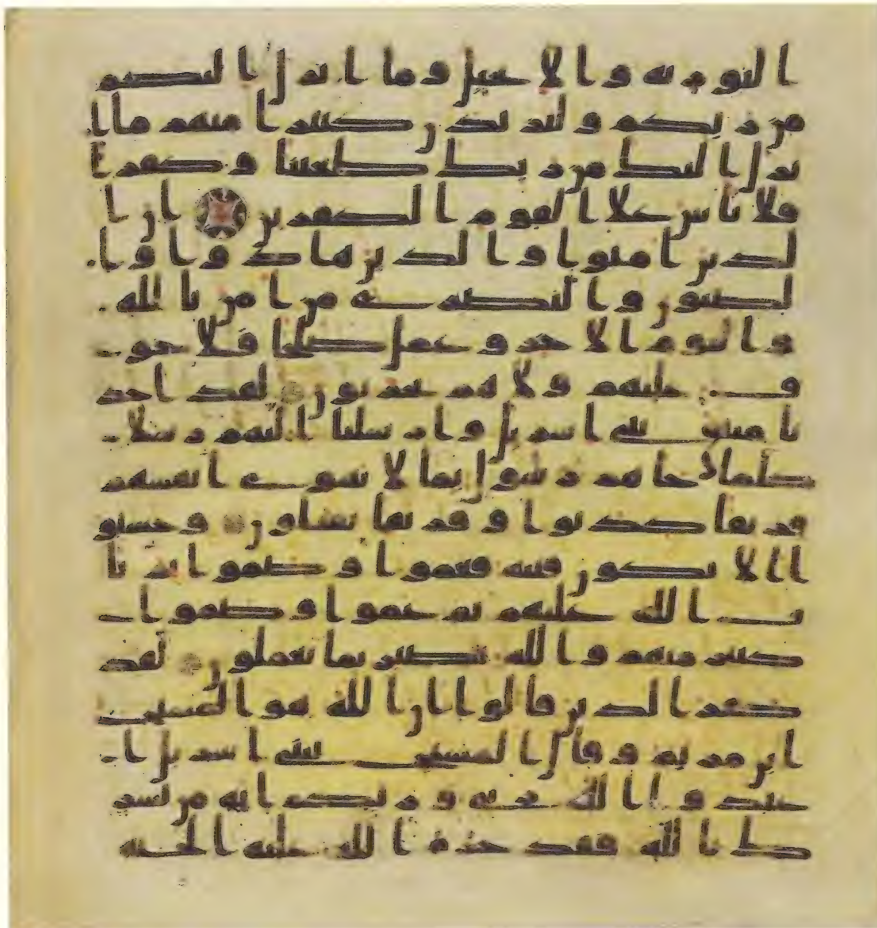 التورىة والانجيل وما انزل اليكم
من ربكم وليزيدن كثيرا منهم ما ا
نزل اليك من ربك طغينا وكفرا
فلا تاس على القوم الكفرين ان ا
لذين امنوا والذين هادوا وا
لصبون والنصرى من امن بالله
واليوم الاخر وعمل صلحا فلا خو
ف عليهم ولا هم يحزنون لقد اخذ
نا ميثق بنى اسريل وارسلنا اليهم رسلا
كلما جاهم رسول بما لا تهوى انفسهم
فريقا كذبوا وفريقا يقتلون وحسبو
ا الا تكون فتنة فعموا وصموا ثم تا
ب الله عليهم ثم عموا وصموا
كثير منهم والله بصير بما يعملون لقد
كفر الذين قالوا ان الله هو المسيح
ابن مريم وقال المسيح يبنى اسريل ا
عبدوا الله ربى وربكم انه من يشر
ك بالله فقد حرم الله عليه الجنة